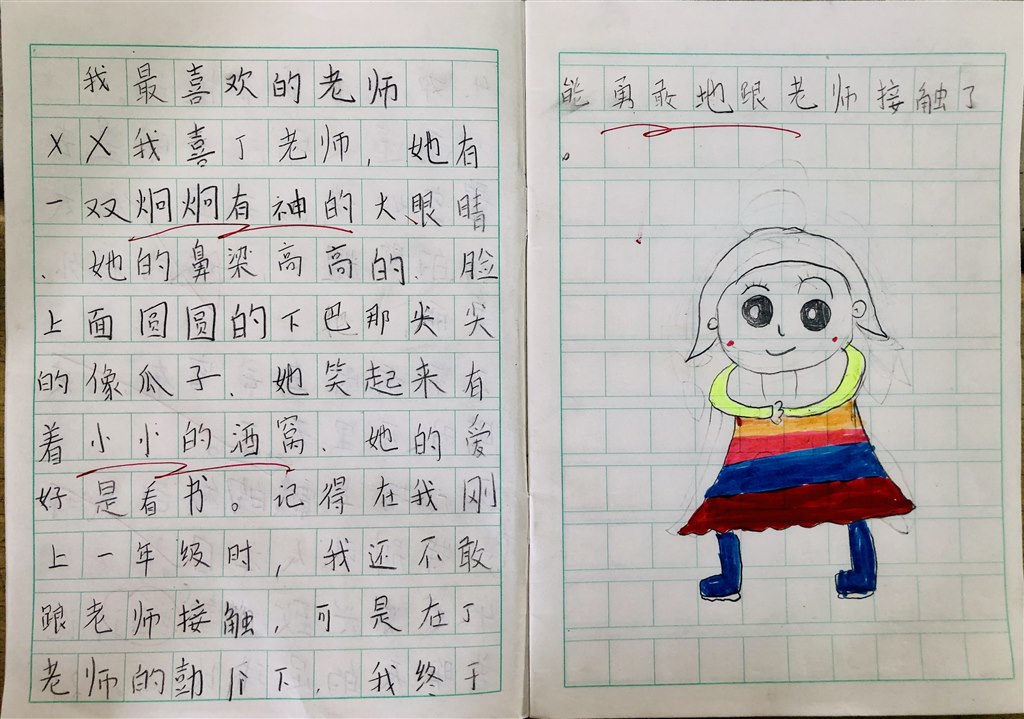 我最喜欢的老师
XX我喜丁老师，她有
一双炯炯有神的大眼睛
、她的鼻梁高高的、脸
上面圆圆的下巴那尖尖
的像瓜子、她笑起来有
着小小的酒窝、她的爱
好是看书。记得在我刚
上一年级时，我还不敢
跟老师接触，可是在丁
老师的下、我终于
能勇敢地跟老师接触了
。